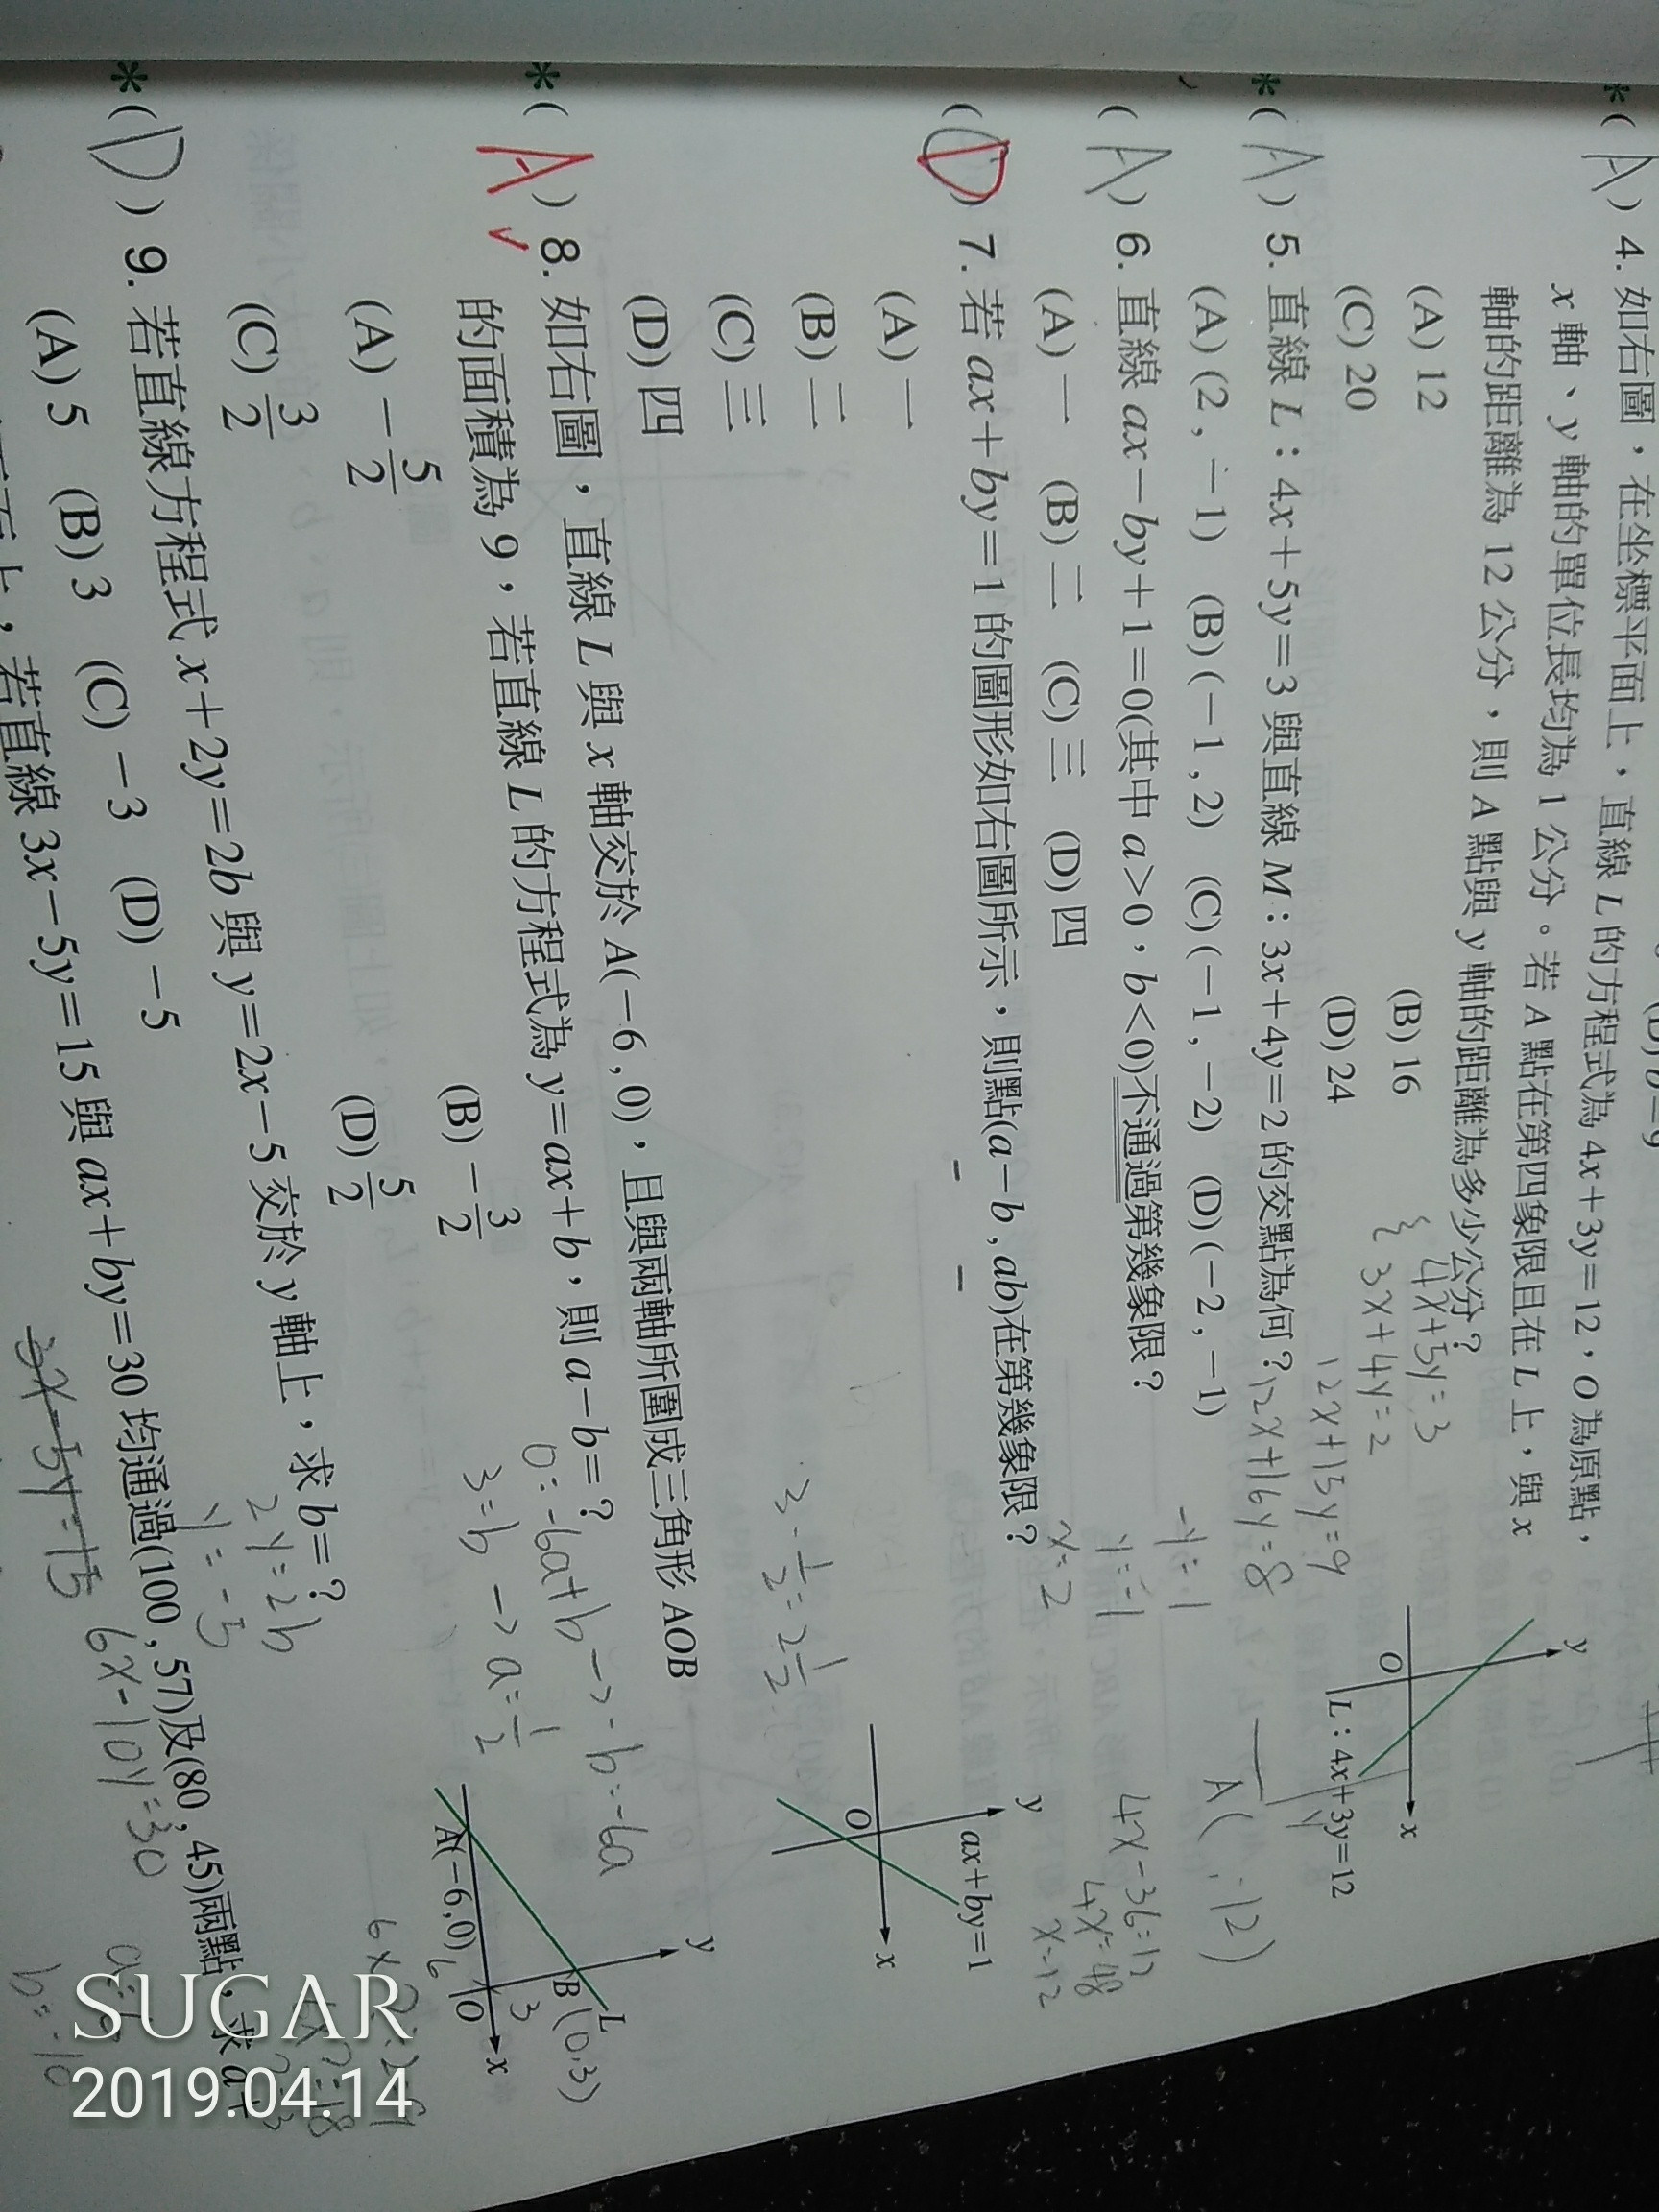 *( A ) 4. 如右圖，在坐標平面上，直線 L 的方程式為 4x+3y=12，O 為原點，
x 軸、y 軸的單位長均為 1 公分。若 A 點在第四象限且在 L 上，與 x
軸的距離為 12 公分，則 A 點與 y 軸的距離為多少公分？
(A) 12 (B) 16
(C) 20 (D) 24
y
O
x
L：4x+3y=12
4x+5y=3
3x+4y=2
12x+15y=9
12x+16y=8
-y=1
y=-1
x=2
A( ,-12)
4x-36=12
4x=48
x=12
*( A ) 5. 直線 L：4x+5y=3 與直線 M：3x+4y=2 的交點為何？
(A) (2,-1) (B) (-1,2) (C) (-1,-2) (D) (-2,-1)
( A ) 6. 直線 ax-by+1=0(其中 a>0，b<0)不通過第幾象限？
(A) 一 (B) 二 (C) 三 (D) 四
( D ) 7. 若 ax+by=1 的圖形如右圖所示，則點(a-b,ab)在第幾象限？
(A) 一
(B) 二
(C) 三
(D) 四
y
ax+by=1
O
x
3-1/2=2 1/2
*( A ) 8. 如右圖，直線 L 與 x 軸交於 A(-6,0)，且與兩軸所圍成三角形 AOB
的面積為 9，若直線 L 的方程式為 y=ax+b，則 a-b=？
(A) -5/2 (B) -3/2
(C) 3/2 (D) 5/2
0=-6a+b → -b=-6a
3=b → a=1/2
y
L
B (0,3)
3
A(-6,0)
6
O
x
*( D ) 9. 若直線方程式 x+2y=2b 與 y=2x-5 交於 y 軸上，求 b=？
(A) 5 (B) 3 (C) -3 (D) -5
2y=2b
y=-5
若直線 3x-5y=15 與 ax+by=30 均通過(100,57)及(80,45)兩點，求 a+
3x-5y=15
6x-10y=30
b=-10
SUGAR
2019.04.14